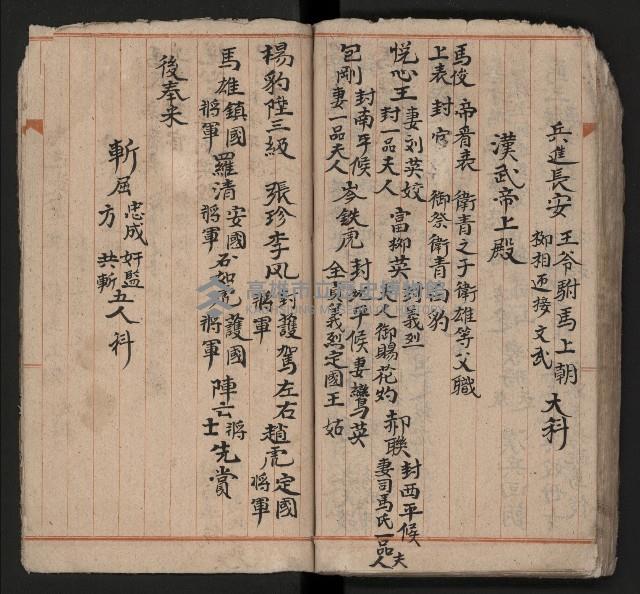 兵進長安 王爷駙馬上朝 大科
柳相迎接文武
漢武帝上殿
馬俊 帝晋表 衛青之子衛雄等父職
上表 封官 御祭衛青西豹
悅心王 妻刘英姣 封一品夫人 富柳英 封義烈夫人御賜花灼 郝聯 封西平候 妻司馬氏一品夫人
包剛 封南平候 妻一品夫人 岑鉄虎 封平候妻鸞英 全貞義烈定國王姑
楊豹陞三級 張珍李风 封護駕左右將軍 趙虎定國將軍
馬雄鎮國將軍 羅清安國將軍 護國將軍 陣亡將士先賞
後奉米
斬屈方 忠成奸監共斬五人科
高雄市立歷史博物館